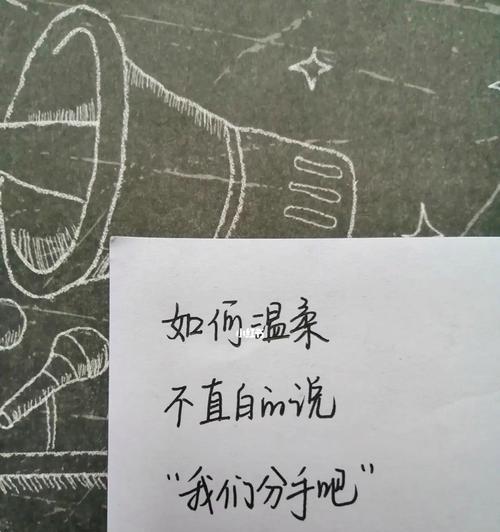 如何温柔
小红书
不直白的说
“我们分手吧”